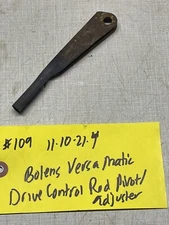 #109 11.10.21.4
Bolens Versa Matic
Drive Control Rod Pivot/
adjuster